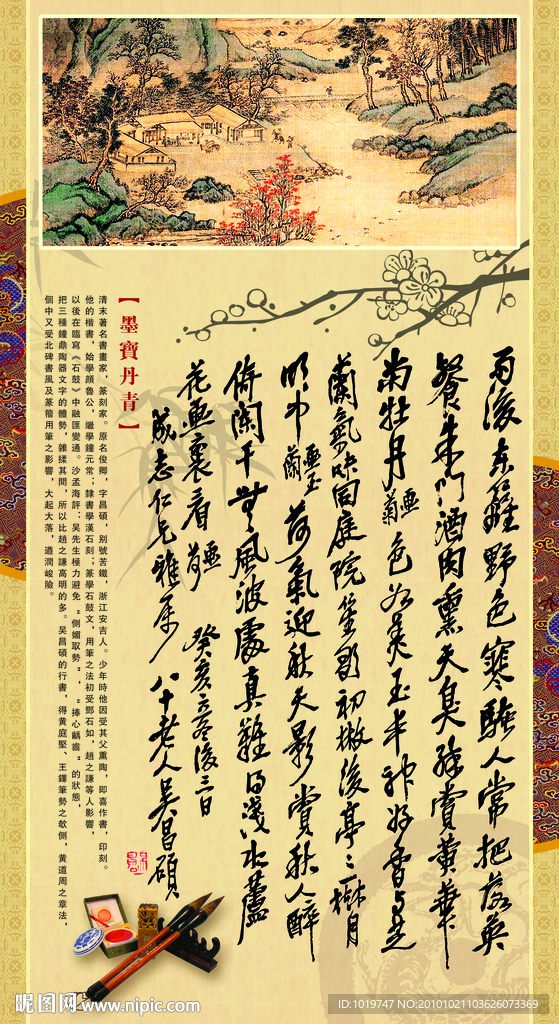 雨後東籬野色寒騷人常把落英
餐朱門酒肉熏天臭誰賞黃華
南牡丹畫菊色如美玉丰神好香与芝
蘭氣味同庭院笙歌初撤後亭亭一樹月
明中畫玉蘭荷氣迎秋天影賞秋人醉
倚闌干無風波處真難得淺水蘆
花畫裏看畫荷癸亥立冬後三日
成志仁兄雅屬八十老人吳昌碩
【墨寶丹青】
清末著名書畫家，篆刻家。原名俊卿，字昌碩，别號苦鐵，浙江安吉人。少年時他因受其父熏陶，即喜作書，印刻。
他的楷書，始學顏魯公，繼學鐘元常；隸書學漢石刻；篆學石鼓文，用筆之法初受鄧石如，趙之謙等人影響，
以後在臨寫《石鼓》中融匯變通。沙孟海評：吳先生極力避免“側媚取勢”，“捧心齲齒”的狀態，
把三種鐘鼎陶器文字的體勢，雜揉其間，所以比趙之謙高明的多。吳昌碩的行書，得黃庭堅、王鐸筆勢之欹側，黃道周之章法，
個中又受北碑書風及篆籀用筆之影響，大起大落，遒潤峻險。
昵图网 www.nipic.com
ID:1019747 NO:20101021103626073369